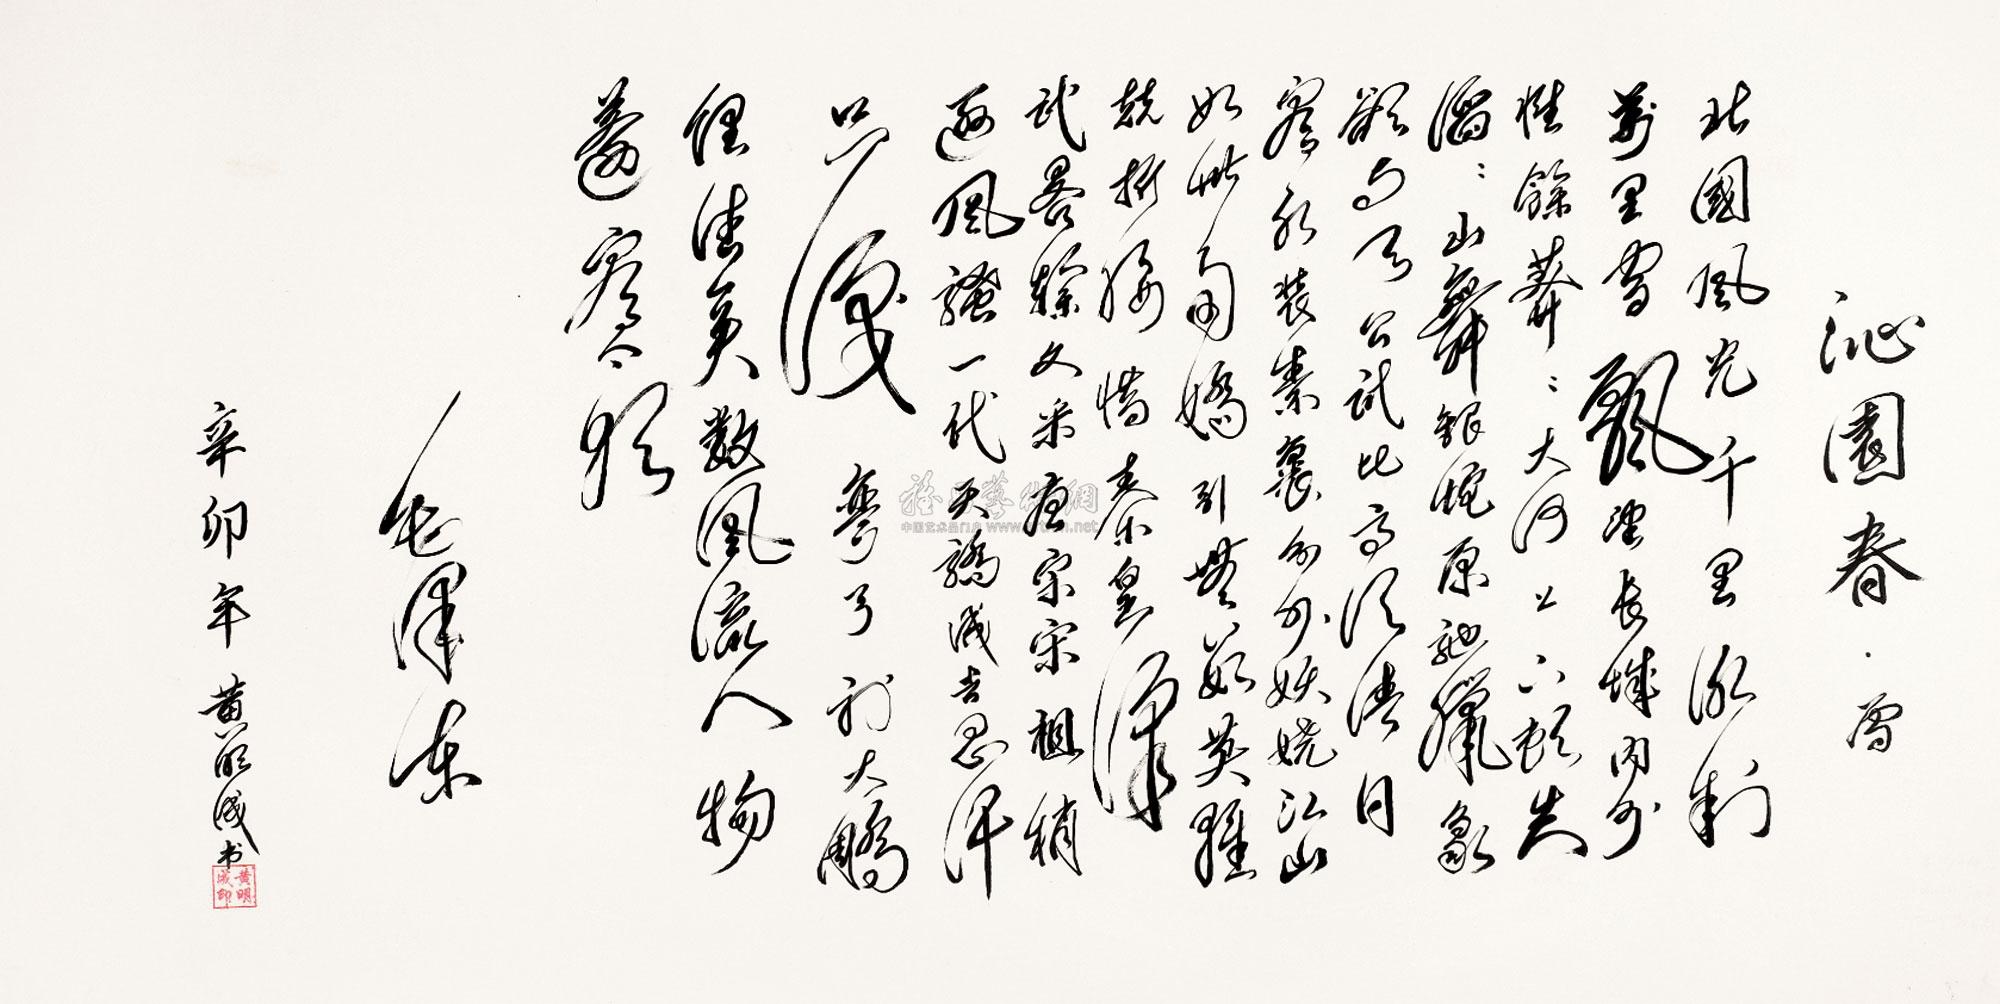 沁園春·雪
北國風光千里冰封
萬里雪飄望長城內外
惟餘莽莽大河上下頓失
滔滔山舞銀蛇原馳臘象
欲與天公試比高須晴日
看紅裝素裹分外妖嬈江山
如此多嬌引無數英雄
競折腰惜秦皇漢
武略輸文采唐宗宋祖稍
遜風騷一代天驕成吉思汗
只識彎弓射大鵰
俱往矣數風流人物
還看今朝
毛澤東
辛卯年黃明成书
黄明成印
中国艺术品门户 www.artron.net